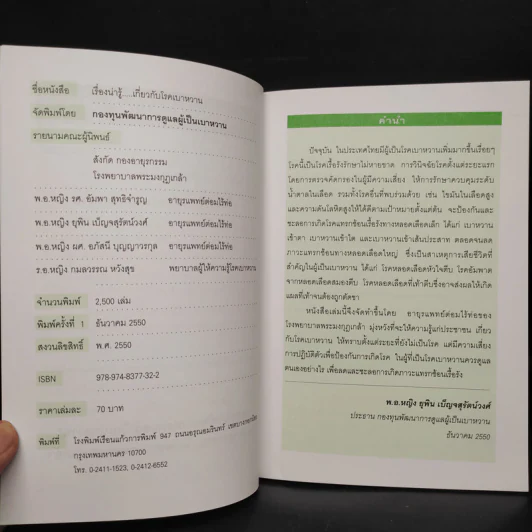 ชื่อหนังสือ เรื่องน่ารู้.....เกี่ยวกับโรคเบาหวาน
จัดพิมพ์โดย กองทุนพัฒนาการดูแลผู้เป็นเบาหวาน
รายนามคณะผู้นิพนธ์
สังกัด กองอายุรกรรม
โรงพยาบาลพระมงกุฎเกล้า
พ.อ.หญิง รศ. อัมพา สุทธิจำรูญ อายุรแพทย์ต่อมไร้ท่อ
พ.อ.หญิง ยุพิน เบ็ญจสุรัตน์วงศ์ อายุรแพทย์ต่อมไร้ท่อ
พ.อ.หญิง ผศ. อภัสนี บุญญาวรกุล อายุรแพทย์ต่อมไร้ท่อ
ร.อ.หญิง กมลวรรณ หวังสุข พยาบาลผู้ให้ความรู้โรคเบาหวาน
จำนวนพิมพ์ 2,500 เล่ม
พิมพ์ครั้งที่ 1 ธันวาคม 2550
สงวนลิขสิทธิ์ พ.ศ. 2550
ISBN 978-974-8377-32-2
ราคาเล่มละ 70 บาท
พิมพ์ที่ โรงพิมพ์เรือนแก้วการพิมพ์ 947 ถนนอรุณอมรินทร์ เขตบางกอกน้อย
กรุงเทพมหานคร 10700
โทร. 0-2411-1523, 0-2412-6552
คำนำ
ปัจจุบัน ในประเทศไทยมีผู้เป็นโรคเบาหวานเพิ่มมากขึ้นเรื่อยๆ
โรคนี้เป็นโรคเรื้อรังรักษาไม่หายขาด การวินิจฉัยโรคตั้งแต่ระยะแรก
โดยการตรวจคัดกรองในผู้มีความเสี่ยง ให้การรักษาควบคุมระดับ
น้ำตาลในเลือด รวมทั้งโรคอื่นที่พบร่วมด้วย เช่น ไขมันในเลือดสูง
และความดันโลหิตสูงให้ได้ตามเป้าหมายตั้งแต่ต้น จะป้องกันและ
ชะลอการเกิดโรคแทรกซ้อนเรื้อรังทางหลอดเลือดเล็ก ได้แก่ เบาหวาน
เข้าตา เบาหวานเข้าไต และเบาหวานเข้าเส้นประสาท ตลอดจนลด
ภาวะแทรกซ้อนทางหลอดเลือดใหญ่ ซึ่งเป็นสาเหตุการเสียชีวิตที่
สำคัญในผู้เป็นเบาหวาน ได้แก่ โรคหลอดเลือดหัวใจตีบ โรคอัมพาต
จากหลอดเลือดสมองตีบ โรคหลอดเลือดที่เท้าตีบซึ่งอาจส่งผลให้เกิด
แผลที่เท้าจนต้องถูกตัดขา
หนังสือเล่มนี้จึงจัดทำขึ้นโดย อายุรแพทย์ต่อมไร้ท่อของ
โรงพยาบาลพระมงกุฎเกล้า มุ่งหวังที่จะให้ความรู้แก่ประชาชน เกี่ยว
กับโรคเบาหวาน ให้ทราบตั้งแต่ระยะที่ยังไม่เป็นโรค แต่มีความเสี่ยง
การปฏิบัติตัวเพื่อป้องกันการเกิดโรค ในผู้ที่เป็นเบาหวานควรดูแล
ตนเองอย่างไร เพื่อลดและชะลอการเกิดภาวะแทรกซ้อนเรื้อรัง
พ.อ.หญิง ยุพิน เบ็ญจสุรัตน์วงศ์
ประธาน กองทุนพัฒนาการดูแลผู้เป็นเบาหวาน
ธันวาคม 2550